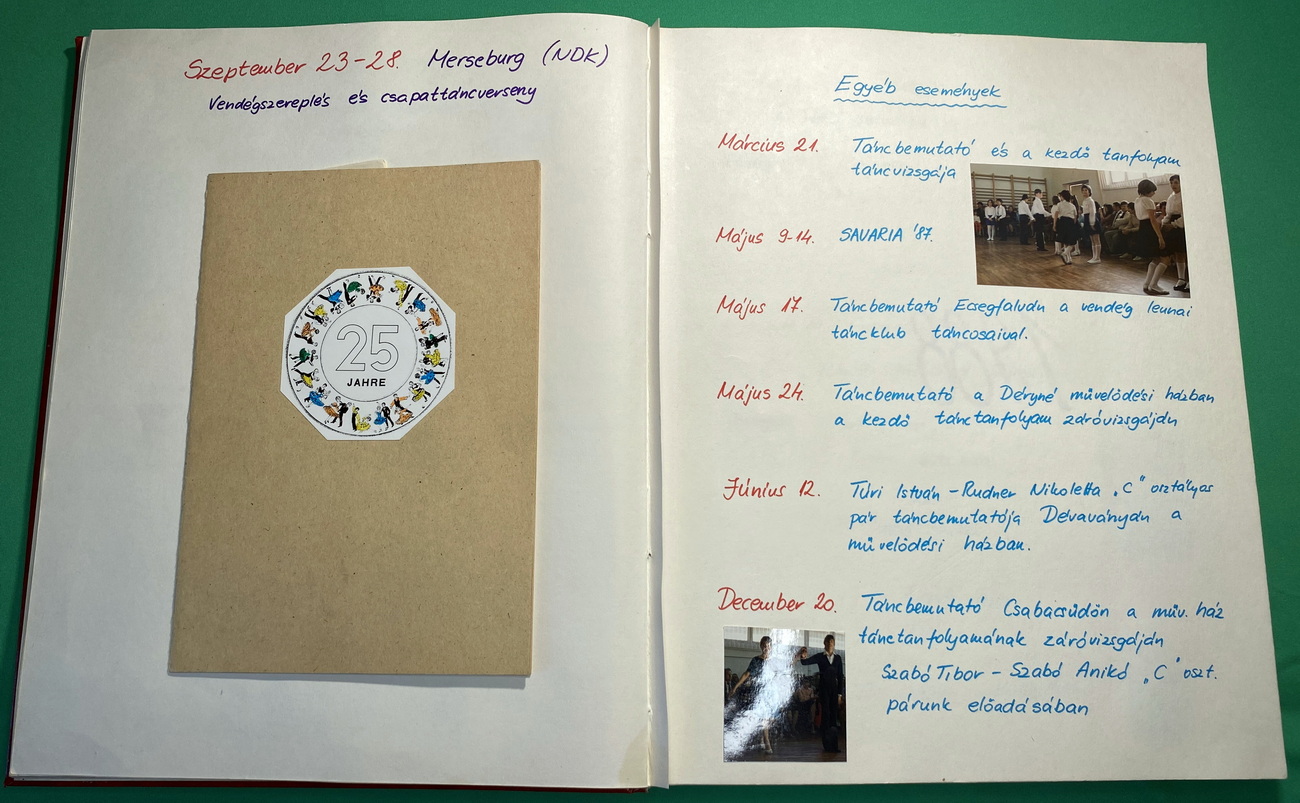 Szeptember 23-28. Merseburg (NDK)
Vendégszereplés és csapattáncverseny
25
JAHRE
Egyéb események
Március 21. Táncbemutató és a kezdő tanfolyam
táncvizsgája
Május 9-14. SAVARIA '87.
Május 17. Táncbemutató Ecsegfalván a vendég leunai
táncklub táncosaival.
Május 24. Táncbemutató a Déryné művelődési házban
a kezdő tánctanfolyam záróvizsgáján
Június 12. Túri István - Rudner Nikoletta „C" osztályos
pár táncbemutatója Dévaványán a
művelődési házban.
December 20. Táncbemutató Csabacsűdön a műv. ház
tánctanfolyamának záróvizsgáján
Szabó Tibor - Szabó Anikó „C" oszt.
párunk előadásában